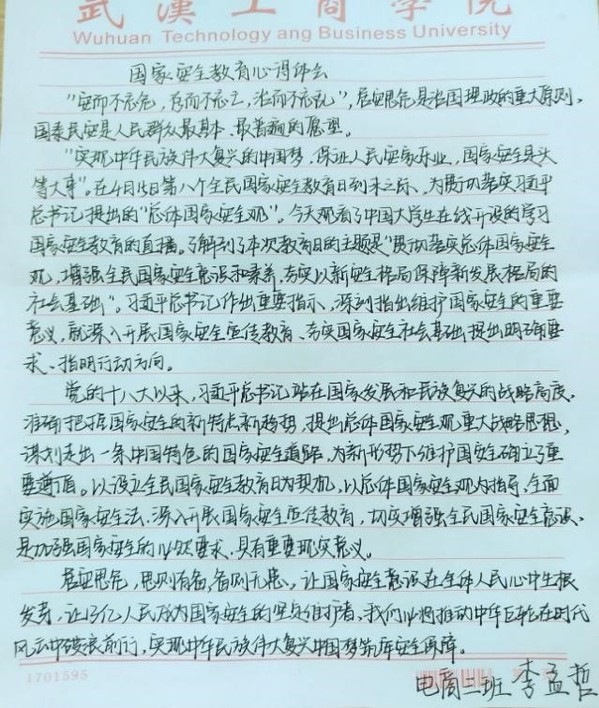 武漢工商学院
Wuhuan Technology ang Business University
国家安全教育心得体会
"安而不忘危，存而不忘亡，治而不忘乱"，居安思危是治国理政的重大原则，
国泰民安是人民群众最基本、最普遍的愿望。
"实现中华民族伟大复兴的中国梦，保证人民安家乐业，国家安全是头
等大事"。在4月15日第八个全民国家安全教育日到来之际、为贯彻落实习近平
总书记提出的"总体国家安全观"。今天观看了中国大学生在线开设的学习
国家安全教育的直播。了解到了本次教育日的主题是"贯彻落实总体国家安全
观，增强全民国家安全意识和素养，夯实以新安全格局保障新发展格局的
社会基础"。习近平总书记作出重要指示，深刻指出维护国家安全的重要
意义，就深入开展国家安全宣传教育、夯实国家安全社会基础提出明确要
求、指明行动方向。
党的十八大以来，习近平总书记站在国家发展和民族复兴的战略高度，
准确把握国家安全的新特点新趋势，提出总体国家安全观重大战略思想，
谋划走出一条中国特色的国家安全道路，为新形势下维护国安全确立了重
要遵循。以设立全民国家安全教育日为契机，以总体国家安全观为指导，全面
实施国家安全法，深入开展国家安全宣传教育，切实增强全民国家安全意识，
是加强国家安全的必然要求，具有重要现实意义。
居安思危，思则有备，备则无患，让国家安全意识在全体人民心中生根
发芽，让13亿人民成为国家安全的坚贞维护者，我们必将推动中华巨轮在时代
风云中破浪前行，实现中华民族伟大复兴中国梦筑牢安全屏障。
1701595
电商二班 李孟哲